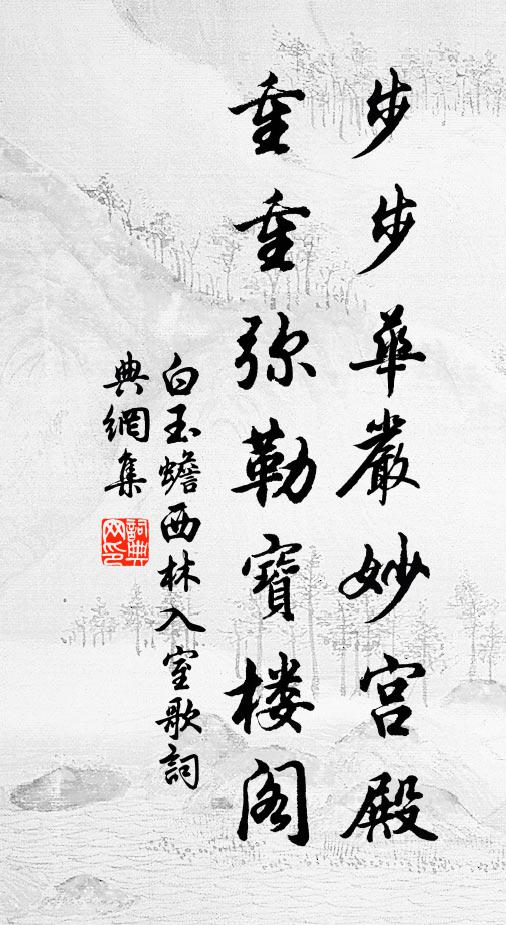 步步華嚴妙宮殿
重重弥勒寶楼阁
白玉蟾西林入室歌詞
典網集
詞典
网印